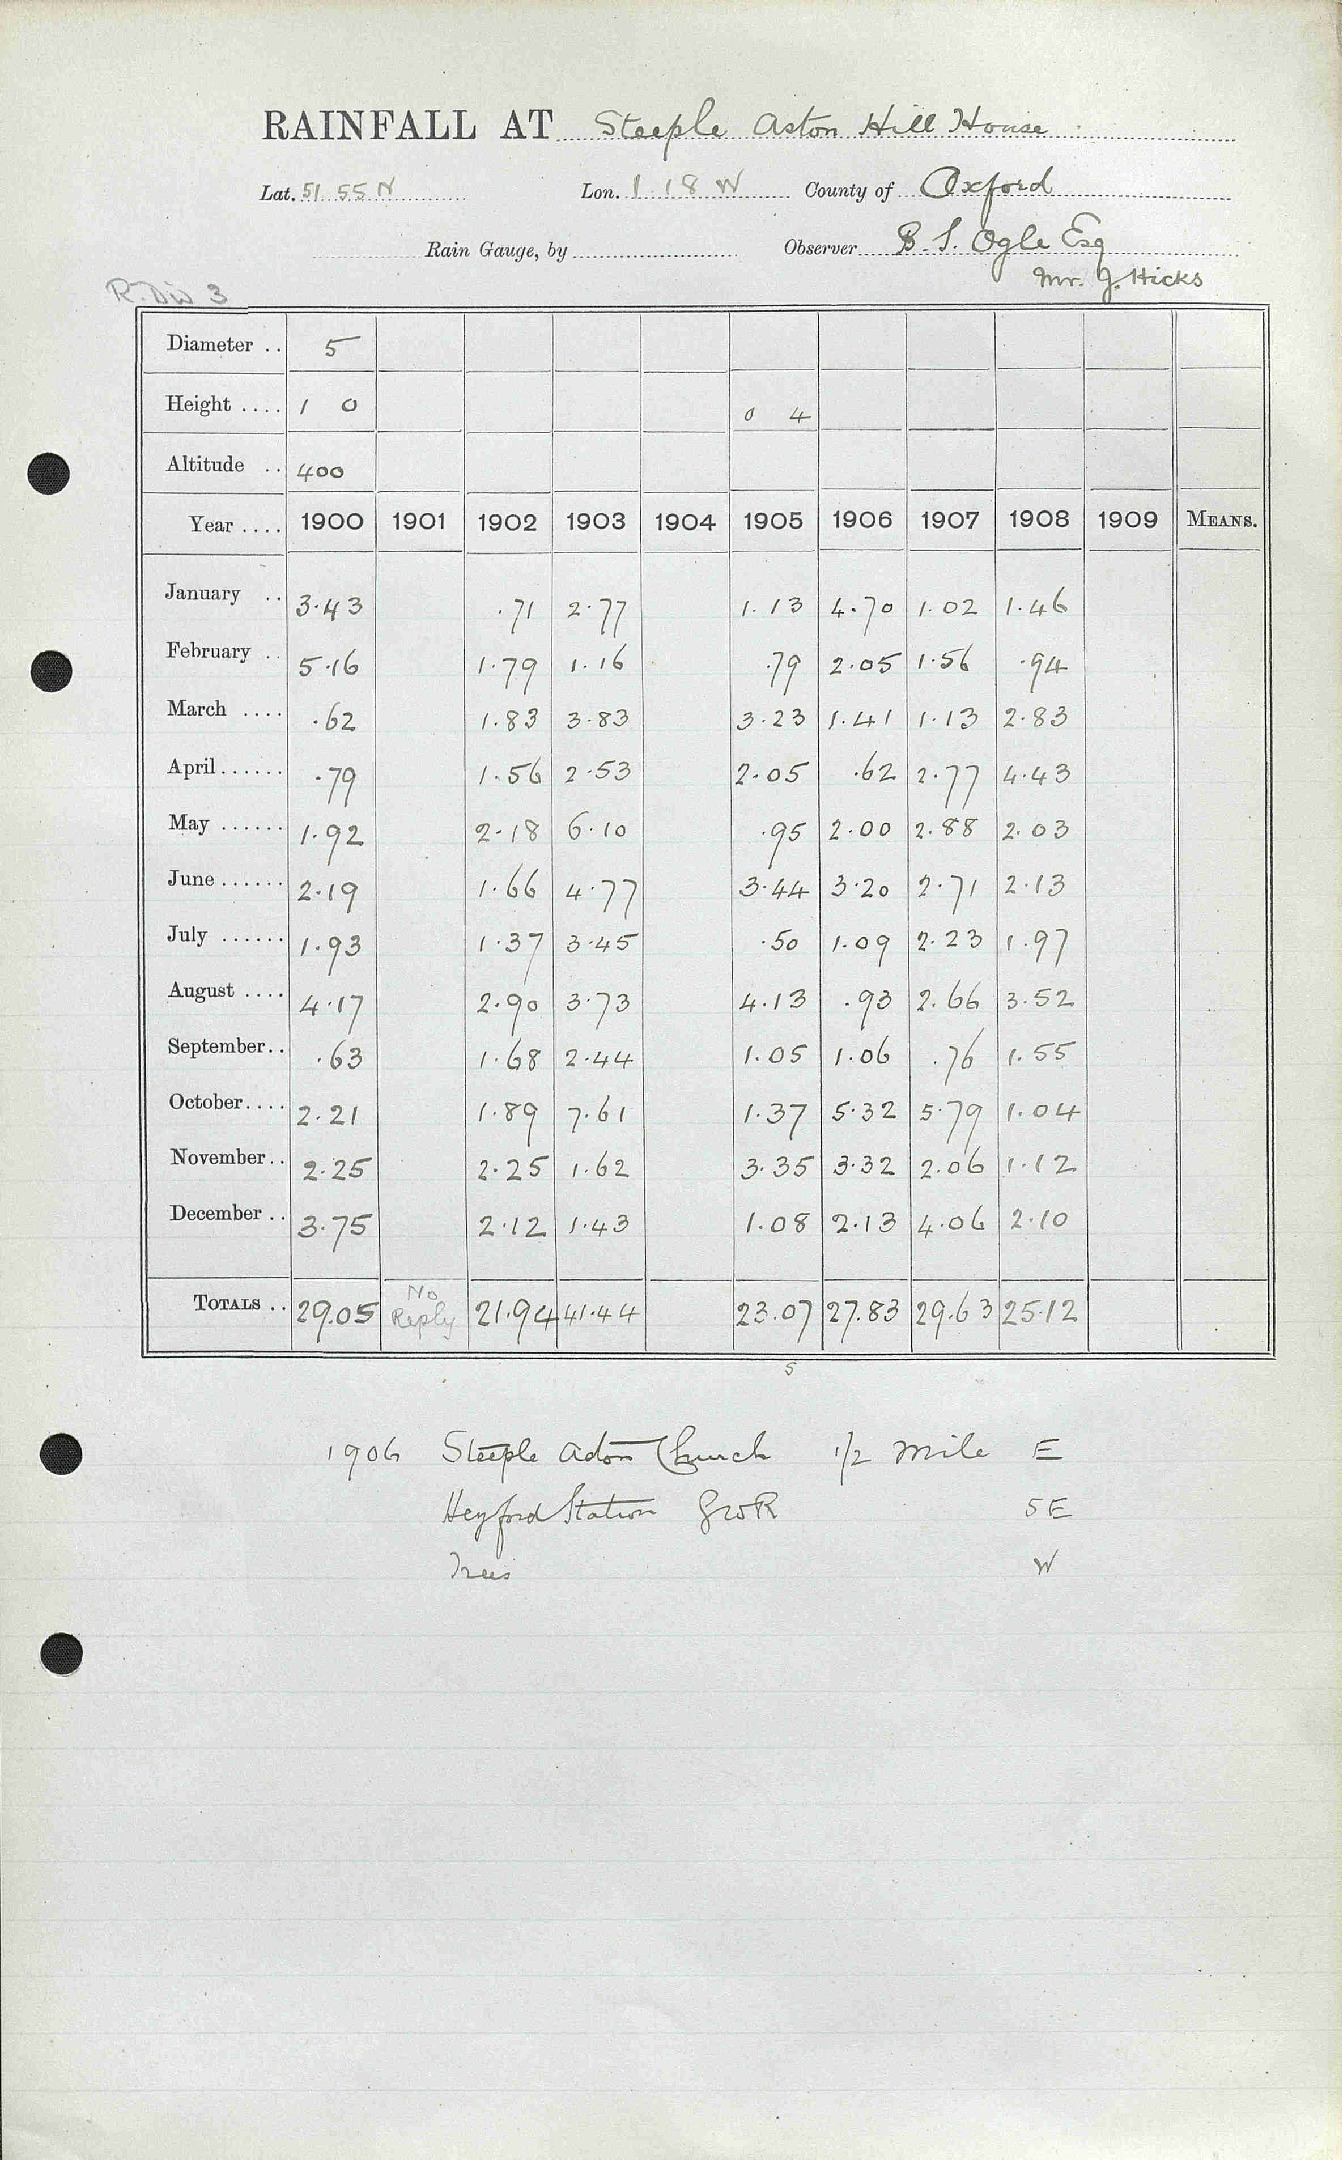 RAINFALL AT Steeple Aston Hill House
Lat. 51.55 N Lon. 1.18 W County of Oxford
Rain Gauge, by Observer B. S. Ogle Esq
Mr. J. Hicks
R. Div 3
Diameter .. 5
Height .... 1 0 0 4
Altitude .. 400
Year .... 1900 1901 1902 1903 1904 1905 1906 1907 1908 1909 MEANS.
January .. 3.43 .71 2.77 1.13 4.70 1.02 1.46
February .. 5.16 1.79 1.16 .79 2.05 1.56 .94
March .... .62 1.83 3.83 3.23 1.41 1.13 2.83
April ...... .79 1.56 2.53 2.05 .62 2.77 4.43
May ...... 1.92 2.18 6.10 .95 2.00 2.88 2.03
June ...... 2.19 1.66 4.77 3.44 3.20 2.71 2.13
July ...... 1.93 1.37 3.45 .50 1.09 2.23 1.97
August .... 4.17 2.90 3.73 4.13 .93 2.66 3.52
September.. .63 1.68 2.44 1.05 1.06 .76 1.55
October.... 2.21 1.89 7.61 1.37 5.32 5.79 1.04
November.. 2.25 2.25 1.62 3.35 3.32 2.06 1.12
December .. 3.75 2.12 1.43 1.08 2.13 4.06 2.10
TOTALS .. 29.05 No Reply 21.94 41.44 23.07 27.83 29.63 25.12
5
1906 Steeple Aston Church 1/2 Mile E
Heyford Station GWR SE
Trees W